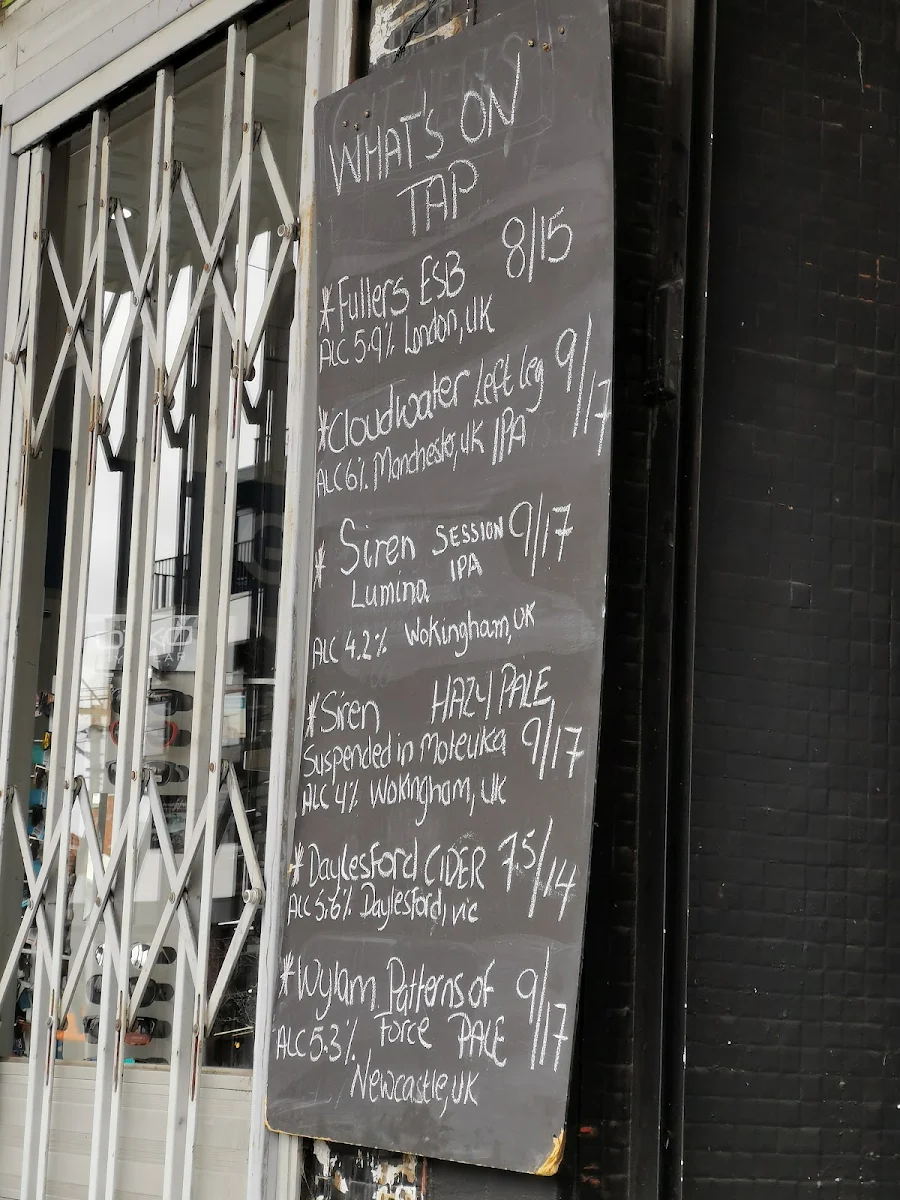 WHAT'S ON
TAP
*Fullers ESB 8/15
ALC 5.9% London, UK
*Cloudwater Left Leg 9/17
ALC 6% Manchester, UK IPA
* Siren SESSION 9/17
Lumina IPA
ALC 4.2% Wokingham, UK
*Siren HAZY PALE
Suspended in Moteuka 9/17
ALC 4% Wokingham, UK
*Daylesford CIDER 7.5/14
ALC 5.6% Daylesford, Vic
*Wylam Patterns of 9/17
ALC 5.3% Force PALE
Newcastle, UK